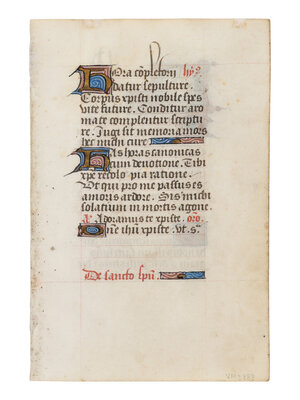 Hora co̅pletorii hy̅s
datur sepulture.
Corpus xp̅isti nobile spes
vite future. Conditur aro
mate complentur scriptu
re. Iugi sit memoria mors
hec michi cure
Has horas canonicas
cum devotione. Tibi
xp̅e recolo pia ratione.
Ut qui pro me passus es
amoris ardore. Sis michi
solatium in mortis agone.
Adoramus te xp̅iste. oro̅
Dn̅e ih̅u xp̅iste. vt. s̅
De sancto spu̅